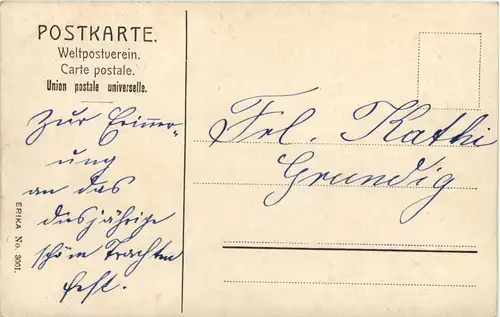 POSTKARTE.
Weltpostverein.
Carte postale.
Union postale universelle.
Zur Erinner-
ung
an das
diesjährige
schöne Trachten
fest.
Frl. Kathi
Grundig
ERIKA No. 3001.